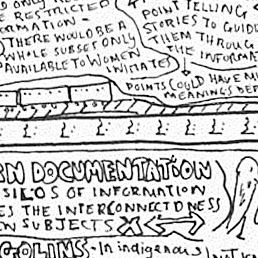 RE RESTRICTED
THERE WOULD BE A
WHOLE SUBSET ONLY
AVAILABLE TO WOMEN
INITIATES
POINT TELLING
STORIES TO GUIDE
THEM THROUG
THE INFORMA
POINTS COULD HAVE MU
MEANINGS DEP
RN DOCUMENTATION
SILOS OF INFORMATION
ES THE INTERCONNECTEDNESS
EN SUBJECTS
COLLINS - In indigenous